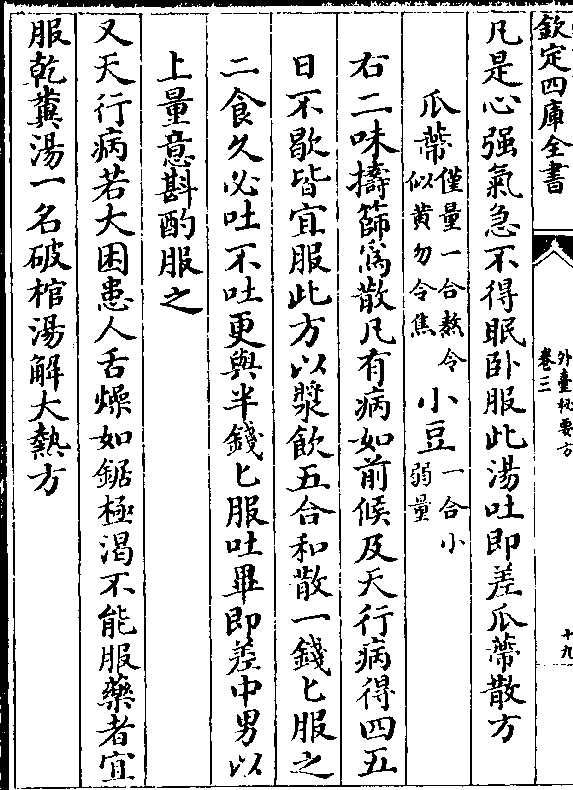 欽定四庫全書
外臺秘要方
卷三
十九
凡是心强氣急不得眠卧服此湯吐即差瓜蔕散方
瓜蔕僅量一合熬令似黄勿令焦 小豆一合小弱量
右二味擣篩為散凡有病如前候及天行病得四五
日不歇皆宜服此方以漿飲五合和散一錢匕服之
二食久必吐不吐更與半錢匕服吐畢即差中男以
上量意斟酌服之
又天行病若大困患人舌燥如鋸極渴不能服藥者宜
服乾糞湯一名破棺湯解大熱方